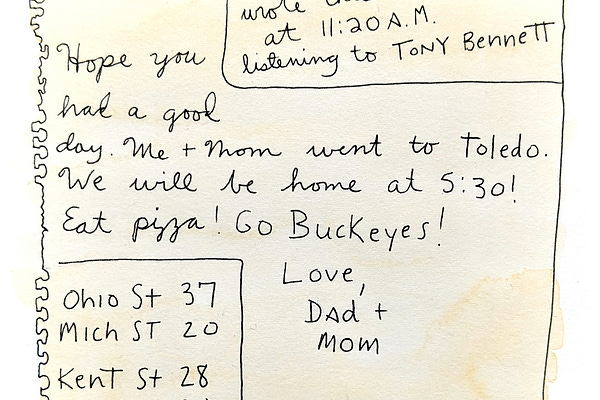 wrote
at 11:20 A.M.
listening to TONY BENNETT
Hope you
had a good
day. Me + Mom went to Toledo.
We will be home at 5:30!
Eat pizza! Go Buckeyes!
Love,
Dad +
Mom
Ohio St 37
Mich ST 20
Kent St 28